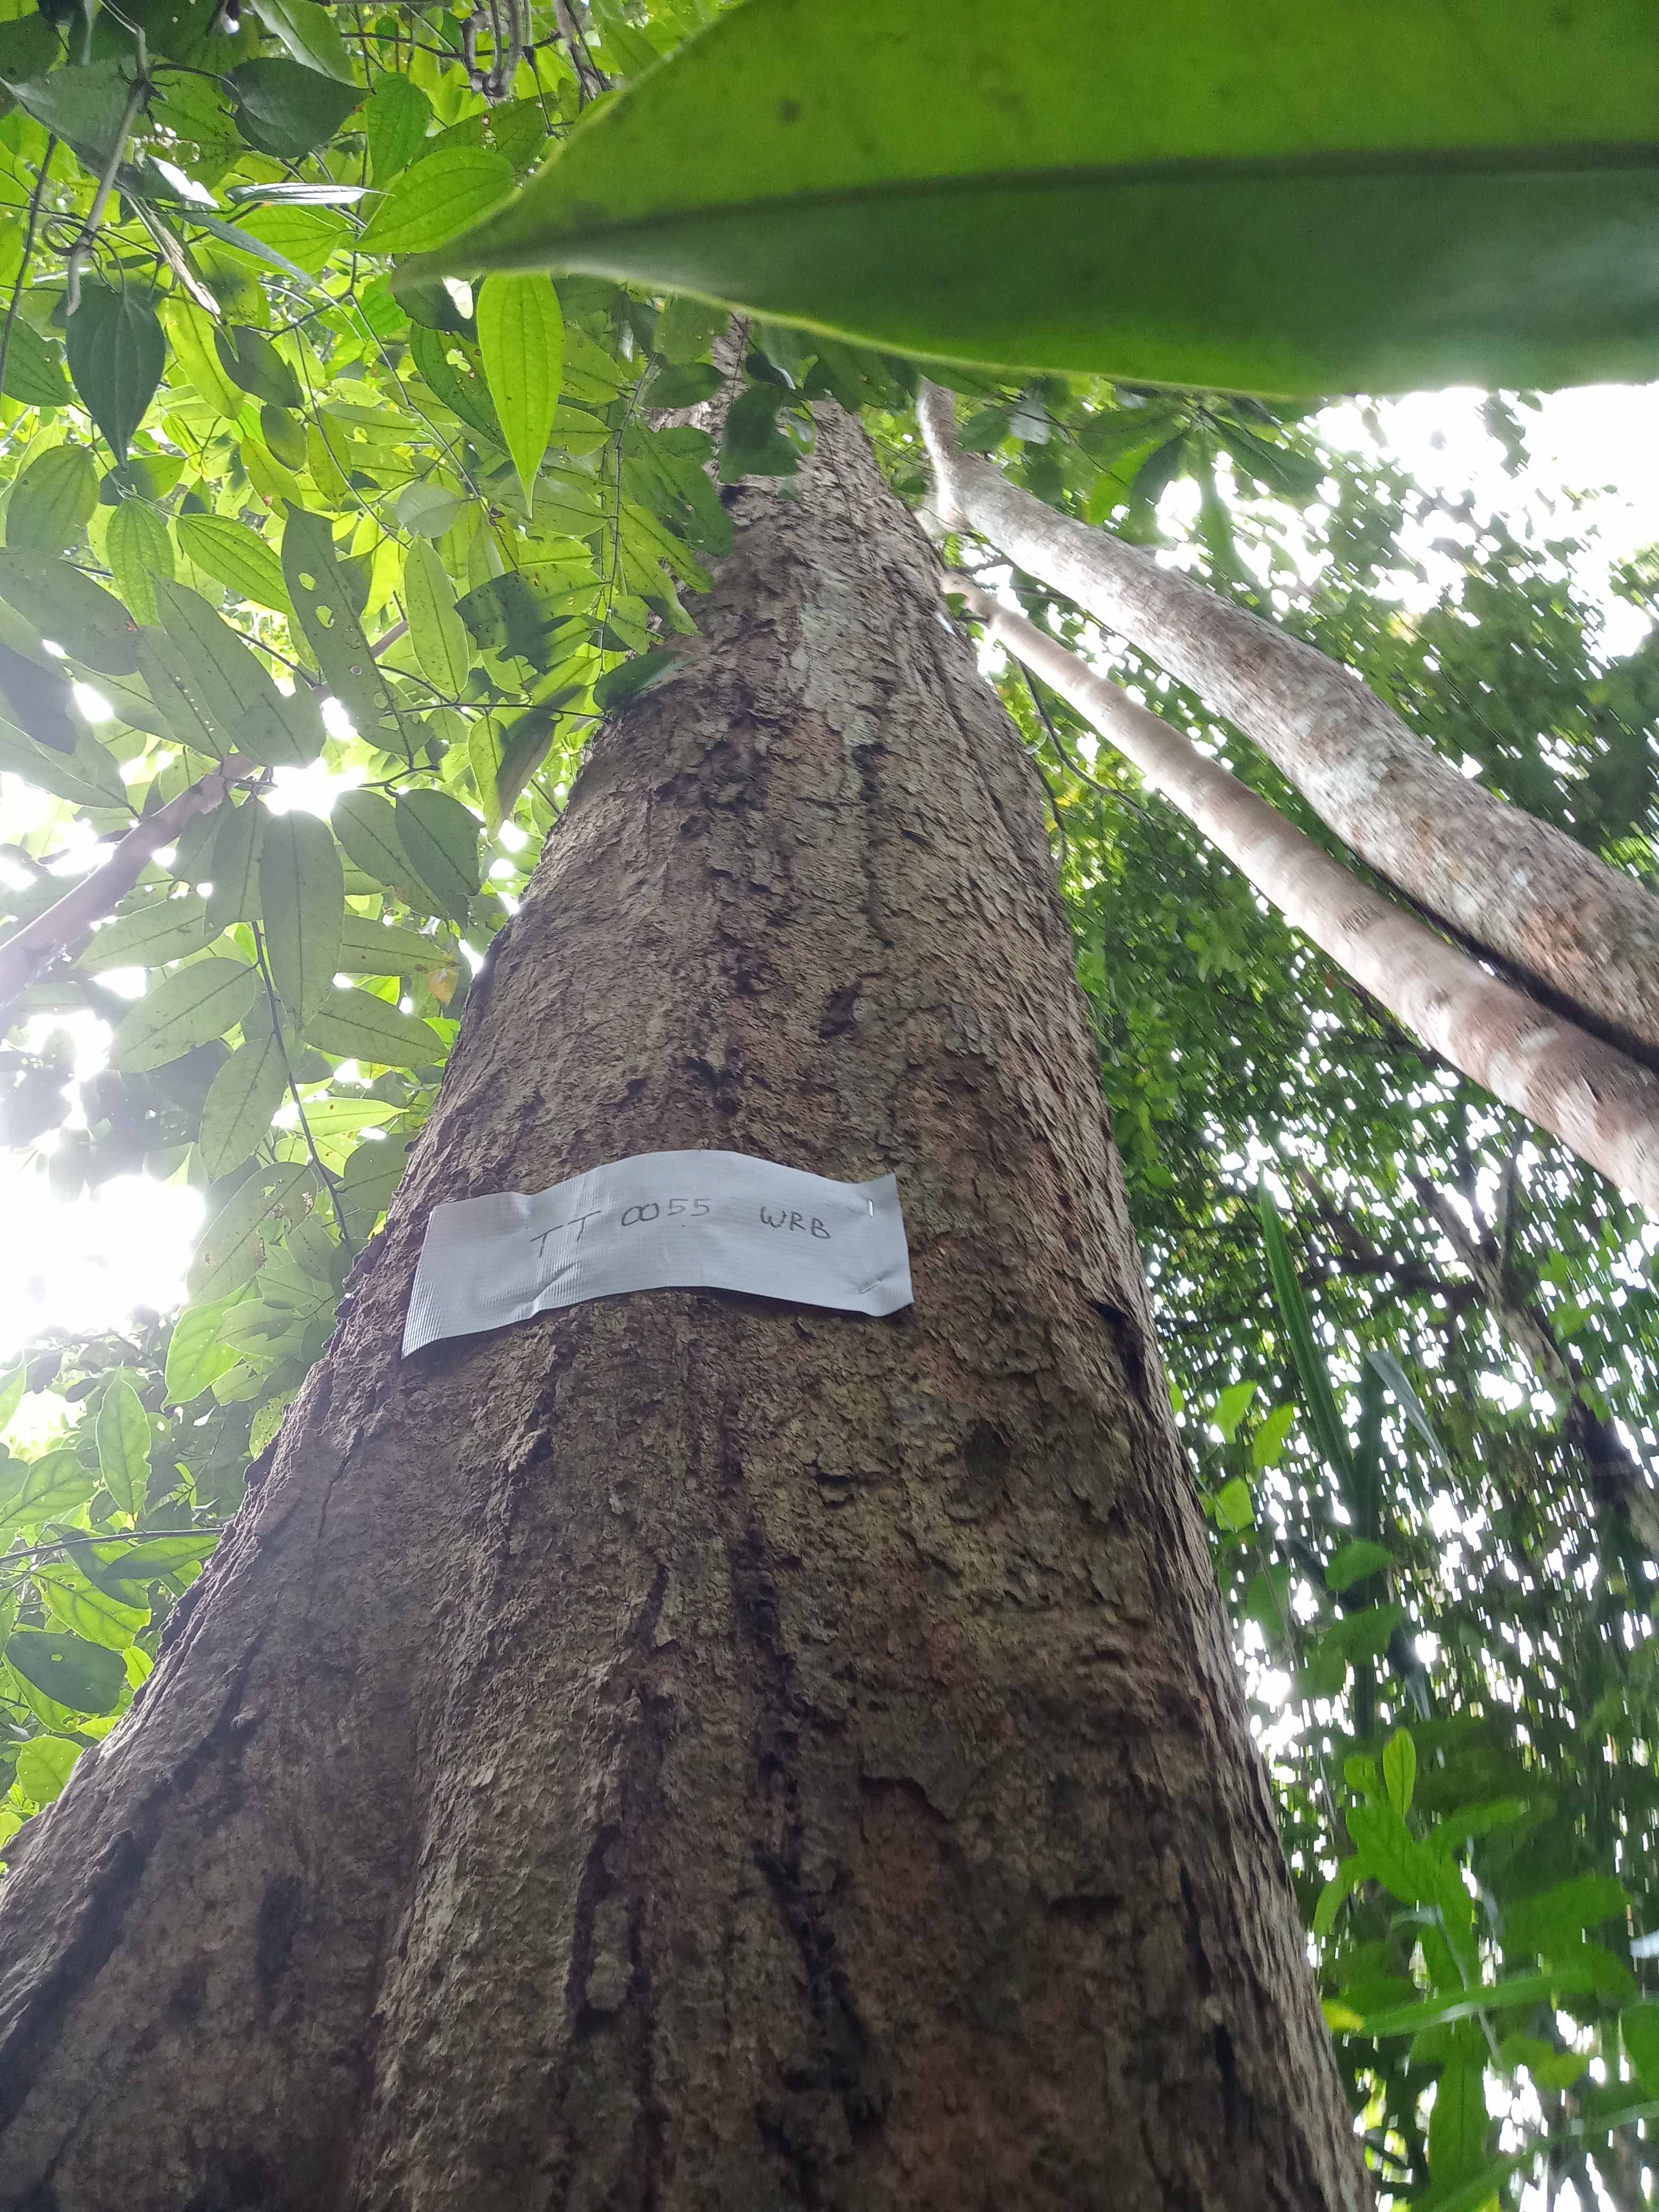 TT 0055 WRB